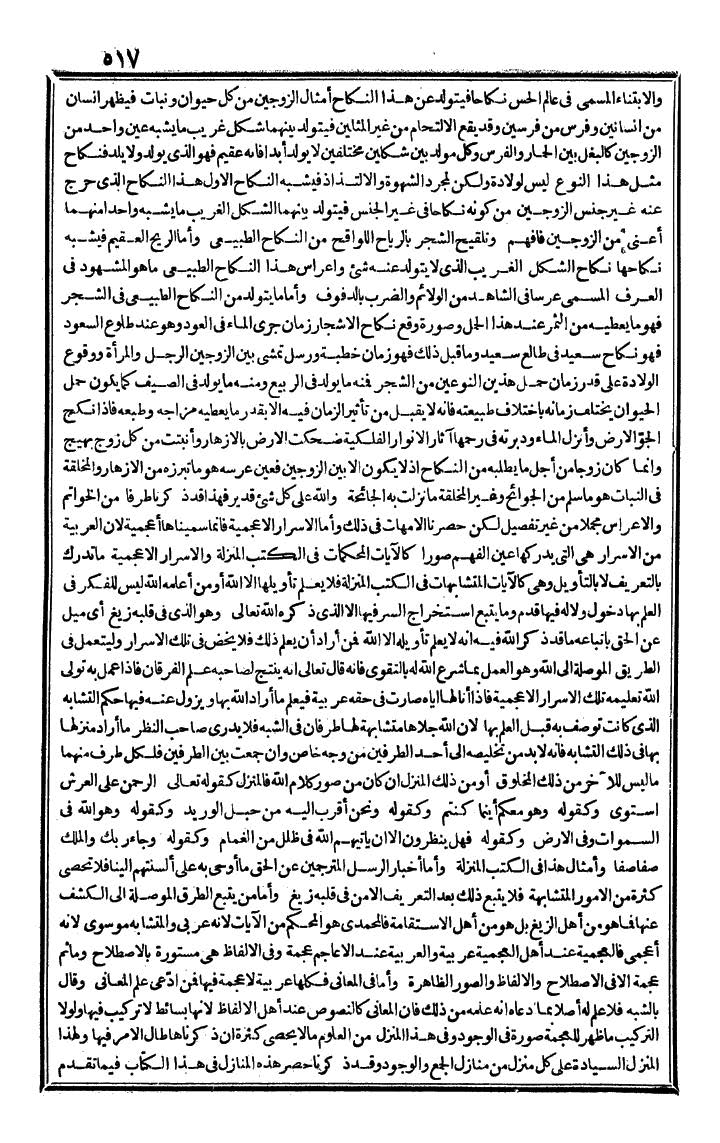 ٥١٧
والابتناء المسمى فى عالم الحس نكاحا فيتولد عن هذا النكاح أمثال الزوجين من كل حيوان ونبات فيظهر انسان
من انسانين وفرس من فرسين وقد يقع الالتحام من غير المثلين فيتولد بينهما شكل غريب ما يشبه عين واحد من
الزوجين كالبغل بين الحمار والفرس وكل مولد بين شكلين مختلفين لا يولد أبدا فانه عقيم فهو الذى يولد ولا يلد فنكاح
مثل هذا النوع ليس لولادة ولكن لمجرد الشهوة والالتذاذ فيشبه النكاح الاول هذا النكاح الذى خرج
عنه غير جنس الزوجين من كونه نكاحا فى غير الجنس فيتولد بينهما الشكل الغريب ما يشبه واحدا منهما
أعنى من الزوجين فافهم وتلقيح الشجر بالرياح اللواقح من النكاح الطبيعى وأما الريح العقيم فيشبه
نكاحها نكاح الشكل الغريب الذى لا يتولد عنه شئ واعراس هذا النكاح الطبيعى ما هو المشهود فى
العرف المسمى عرسا فى الشاهد من الولائم والضرب بالدفوف وأما ما يتولد من النكاح الطبيعى فى الشجر
فهو ما يعطيه من الثمر عند هذا الحمل وصورة وقع نكاح الاشجار زمان جرى الماء فى العود وهو عند طلوع السعود
فهو نكاح سعيد فى طالع سعيد وما قبل ذلك فهو زمان خطبة ورسل تمشى بين الزوجين الرجل والمرأة ووقوع
الولادة على قدر زمان حمل هذين النوعين من الشجر فمنه ما يولد فى الربيع ومنه ما يولد فى الصيف كما يكون حمل
الحيوان يختلف زمانه باختلاف طبيعته فانه لا يقبل من تأثير الزمان فيه الا بقدر ما يعطيه مزاجه وطبعه فاذا نكح
الجو الارض وأنزل الماء ودبرته فى رحمها آثار الانوار الفلكية ضحكت الارض بالازهار وأنبتت من كل زوج بهيج
وانما كان زوجا من أجل ما يطلبه من النكاح اذ لا يكون الا بين الزوجين فعين عرسه هو ما تبرزه من الازهار والمخلقة
فى النبات هو ما سلم من الجوائح وغير المخلقة ما نزلت به الجائحة والله على كل شئ قدير فهذا قد ذكرنا طرفا من الخواتم
والاعراس مجملا من غير تفصيل لكن حصرنا الامهات فى ذلك وأما الاسرار الاعجمية فانما سميناها أعجمية لان العربية
من الاسرار هى التى يدركها عين الفهم صورا كالآيات المحكمات فى الكتب المنزلة والاسرار الاعجمية ما تدرك
بالتعريف لا بالتأويل وهى كالآيات المتشابهات فى الكتب المنزلة فلا يعلم تأويلها الا الله أو من أعلمه الله ليس للفكر فى
العلم بها دخول ولا له فيها قدم وما يتبع استخراج السر فيها الا الذى ذكره الله تعالى وهو الذى فى قلبه زيغ أى ميل
عن الحق باتباعه ما قد ذكر الله فيه انه لا يعلم تأويله الا الله فمن أراد أن يعلم ذلك فلا يخض فى تلك الاسرار وليتعمل فى
الطريق الموصلة الى الله وهو العمل بما شرع الله له بالتقوى فانه قال تعالى انه ينتج لصاحبه علم الفرقان فاذا عمل به تولى
الله تعليمه تلك الاسرار الاعجمية فاذا أنالها اياه صارت فى حقه عربية فيعلم ما أراد الله بها ويزول عنه فيها حكم التشابه
الذى كانت توصف به قبل العلم بها لان الله جلاها متشابهة لها طرفان فى الشبه فلا يدرى صاحب النظر ما أراد منزلها
بها فى ذلك التشابه فانه لا بد من تخليصه الى أحد الطرفين من وجه خاص وان جمعت بين الطرفين فلكل طرف منهما
ما ليس للآخر من ذلك المخلوق أو من ذلك المنزل ان كان من صور كلام الله فالمنزل كقوله تعالى الرحمن على العرش
استوى وكقوله وهو معكم أينما كنتم وكقوله ونحن أقرب اليه من حبل الوريد وكقوله وهو الله فى
السموات وفى الارض وكقوله فهل ينظرون الا ان يأتيهم الله فى ظلل من الغمام وكقوله وجاء ربك والملك
صفا صفا وأمثال هذا فى الكتب المنزلة وأما أخبار الرسل المترجمين عن الحق ما أوحى به على ألسنتهم الينا فلا تحصى
كثرة من الامور المتشابهة فلا يتبع ذلك بعد التعريف الا من فى قلبه زيغ وأما من يتبع الطرق الموصلة الى الكشف
عنها فما هو من أهل الزيغ بل هو من أهل الاستقامة فالمحمدى هو المحكم من الآيات لانه عربى والمتشابه موسوى لانه
أعجمى فالعجمية عند أهل العجمية عربية والعربية عند الاعاجم عجمة وفى الالفاظ هى مستورة بالاصطلاح وما ثم
عجمة الا فى الاصطلاح والالفاظ والصور الظاهرة وأما فى المعانى فكلها عربية لا عجمة فيها فمن ادعى علم المعانى وقال
بالشبه فلا علم له أصلا بما دعاه انه علمه من ذلك فان المعانى كالنصوص عند أهل الالفاظ لانها بسائط لا تركيب فيها ولولا
التركيب ما ظهر للعجمة صورة فى الوجود وفى هذا المنزل من العلوم ما لا يحصى كثرة ان ذكرناها طال الامر فيها ولهذا
المنزل السيادة على كل منزل من منازل الجمع والوجود وقد ذكرنا حصر هذه المنازل فى هذا الكتاب فيما تقدم